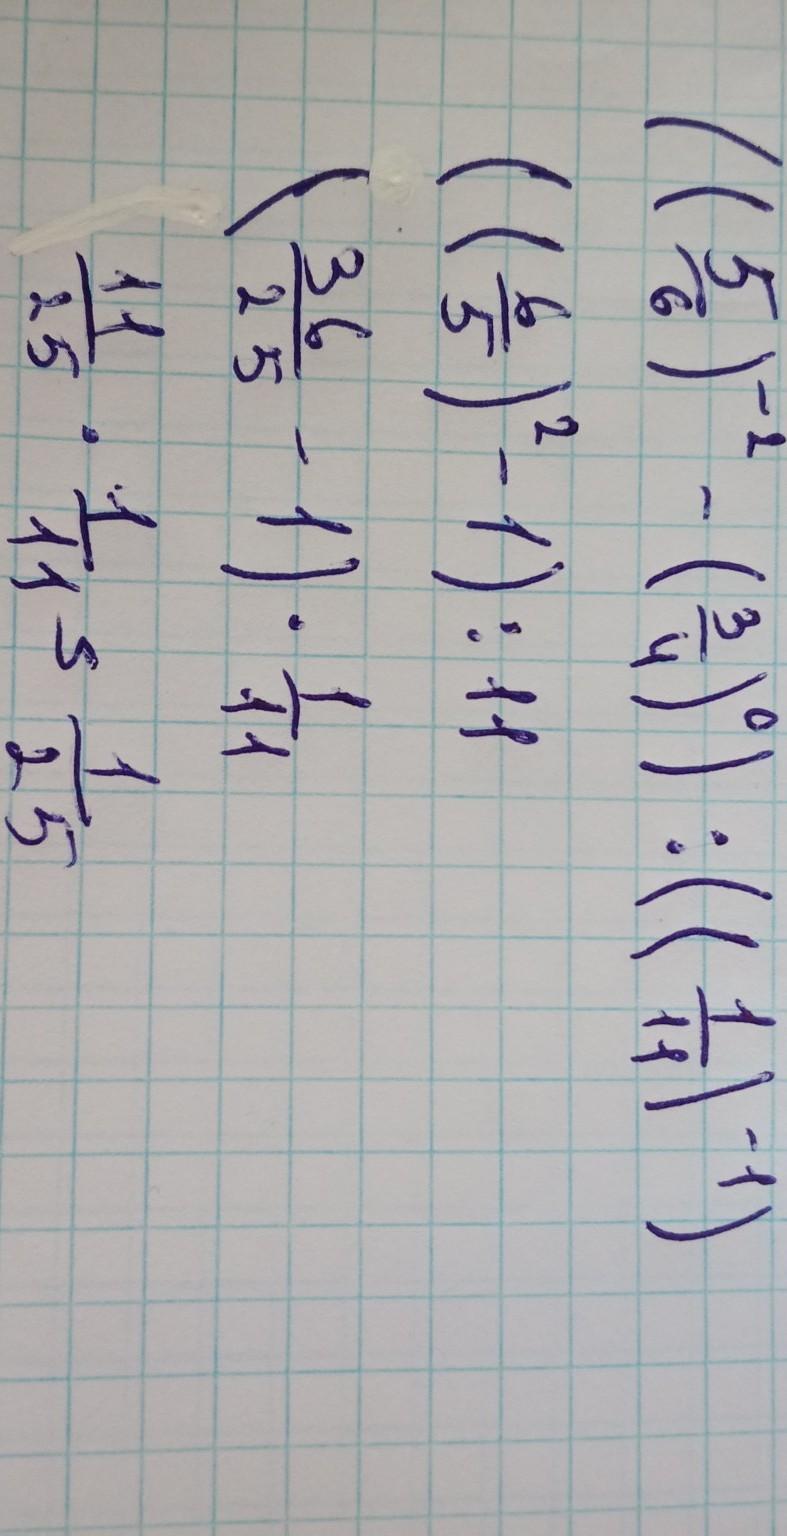 ((5/6)^-2 - (3/4)^0) : ((1/11)^-1)
((6/5)^2 - 1) : 11
(36/25 - 1) · 1/11
11/25 · 1/11 = 1/25